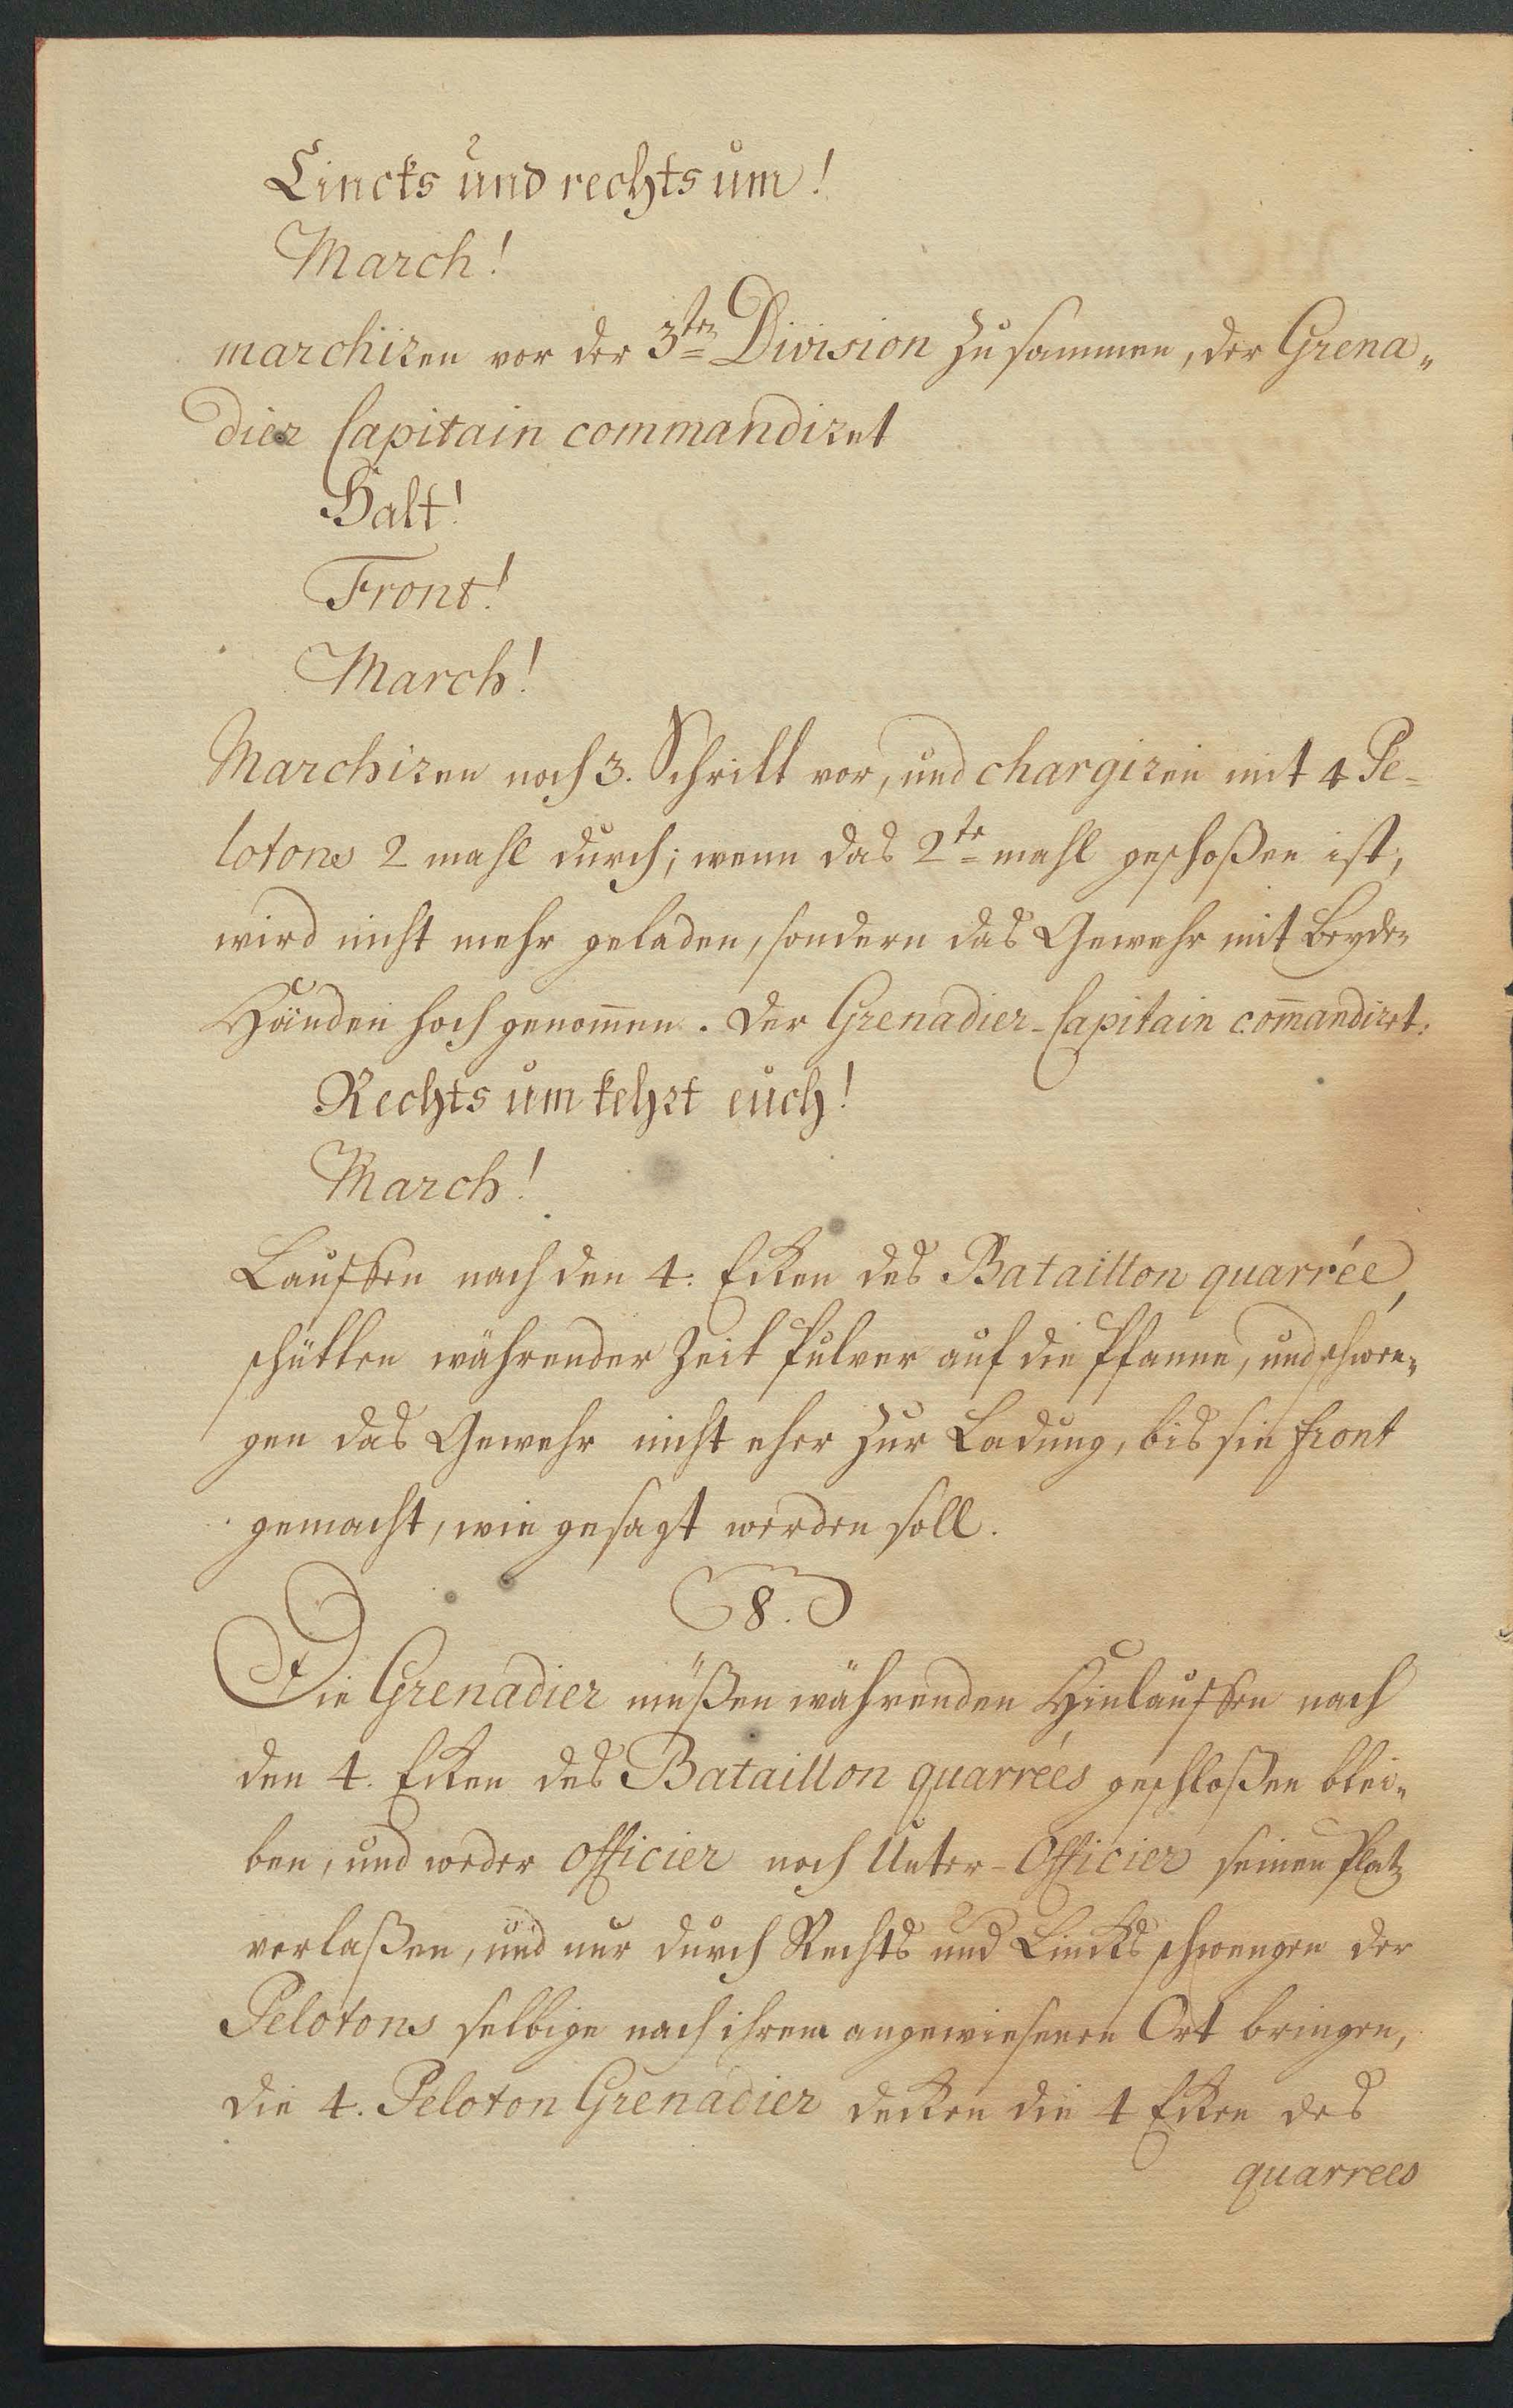 Lincks und rechts um!
March!
marchiren vor der 3ten Division zusammen, der Grena„
dier Capitain commandiret
Halt!
Front!
March!
Marchiren noch 3. Schritt vor, und chargiren mit 4 Pe-
lotons 2 mahl durch; wenn das 2te mahl geschoßen ist,
wird nicht mehr geladen, sondern das Gewehr mit beyden
Händen hoch genom̄en. Der Grenadier-Capitain com̄andiret:
Rechts um kehrt euch!
March!
Lauffen nach den 4. Ecken des Bataillon quarrée,
schütten währender Zeit Pulver auf die Pfanne, und schwen„
gen das Gewehr nicht eher zur Ladung, bis sie front
gemacht, wie gesagt werden soll.
8.
Die Grenadier müßen währenden Hinlauffen nach
den 4. Ecken des Bataillon quarrées geschloßen blei„
ben, und weder Officier noch Unter-Officier seinen Platz
verlaßen, und nur durch Rechts und Lincks schwengen der
Pelotons selbige nach ihrem angewiesenen Ort bringen,
die 4. Peloton Grenadier decken die 4 Ecken des
quarrees